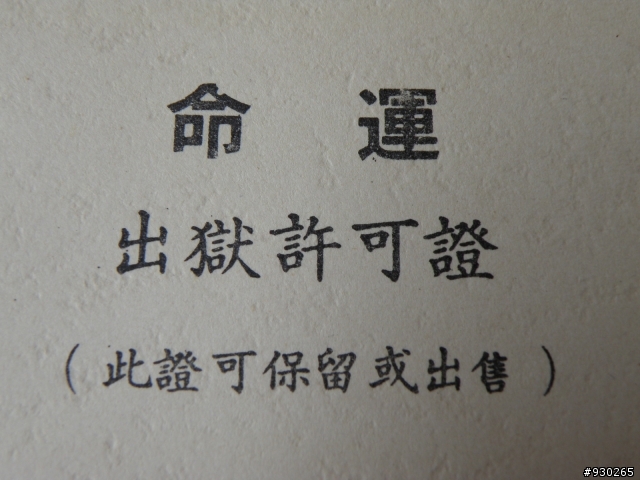 命運
出獄許可證
（此證可保留或出售）
#930265